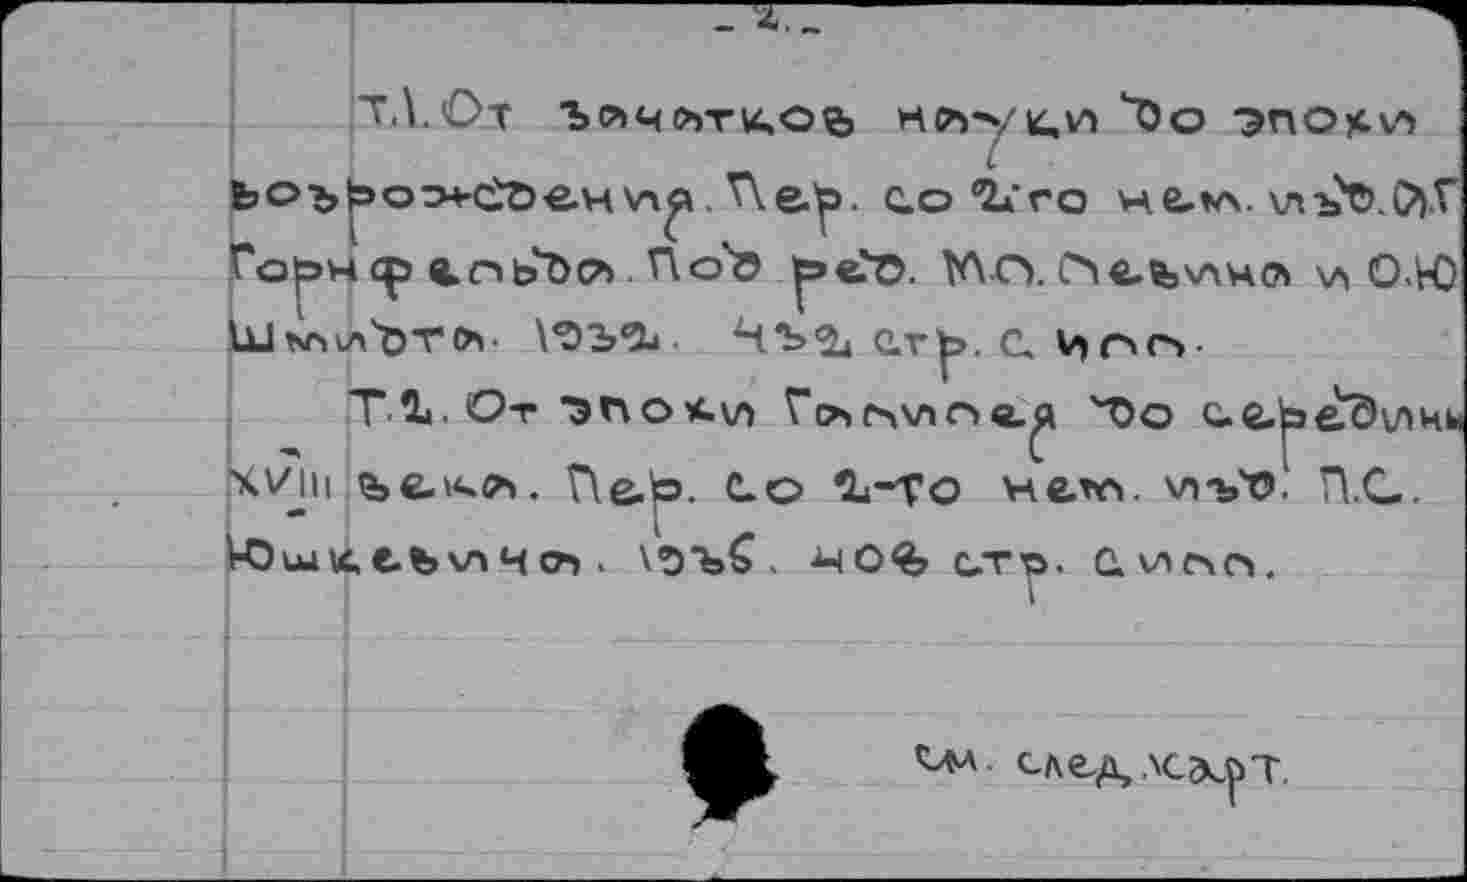 - 2. -
Т.1. От зачатков науки до эпохи
возрождения. Пер. со 2-го нем. изд. А.Г
Горнфельда. Под ред. М.Л. Левина и О.Ю
Шмидта. 1932. 432 стр. с илл.
Т.2. От эпохи Галилея до середины
XVIII века. Пер. со 2-го нем. изд. П.С.
Юшкевича. 1935. 408 стр. с илл.
см. след. карт.